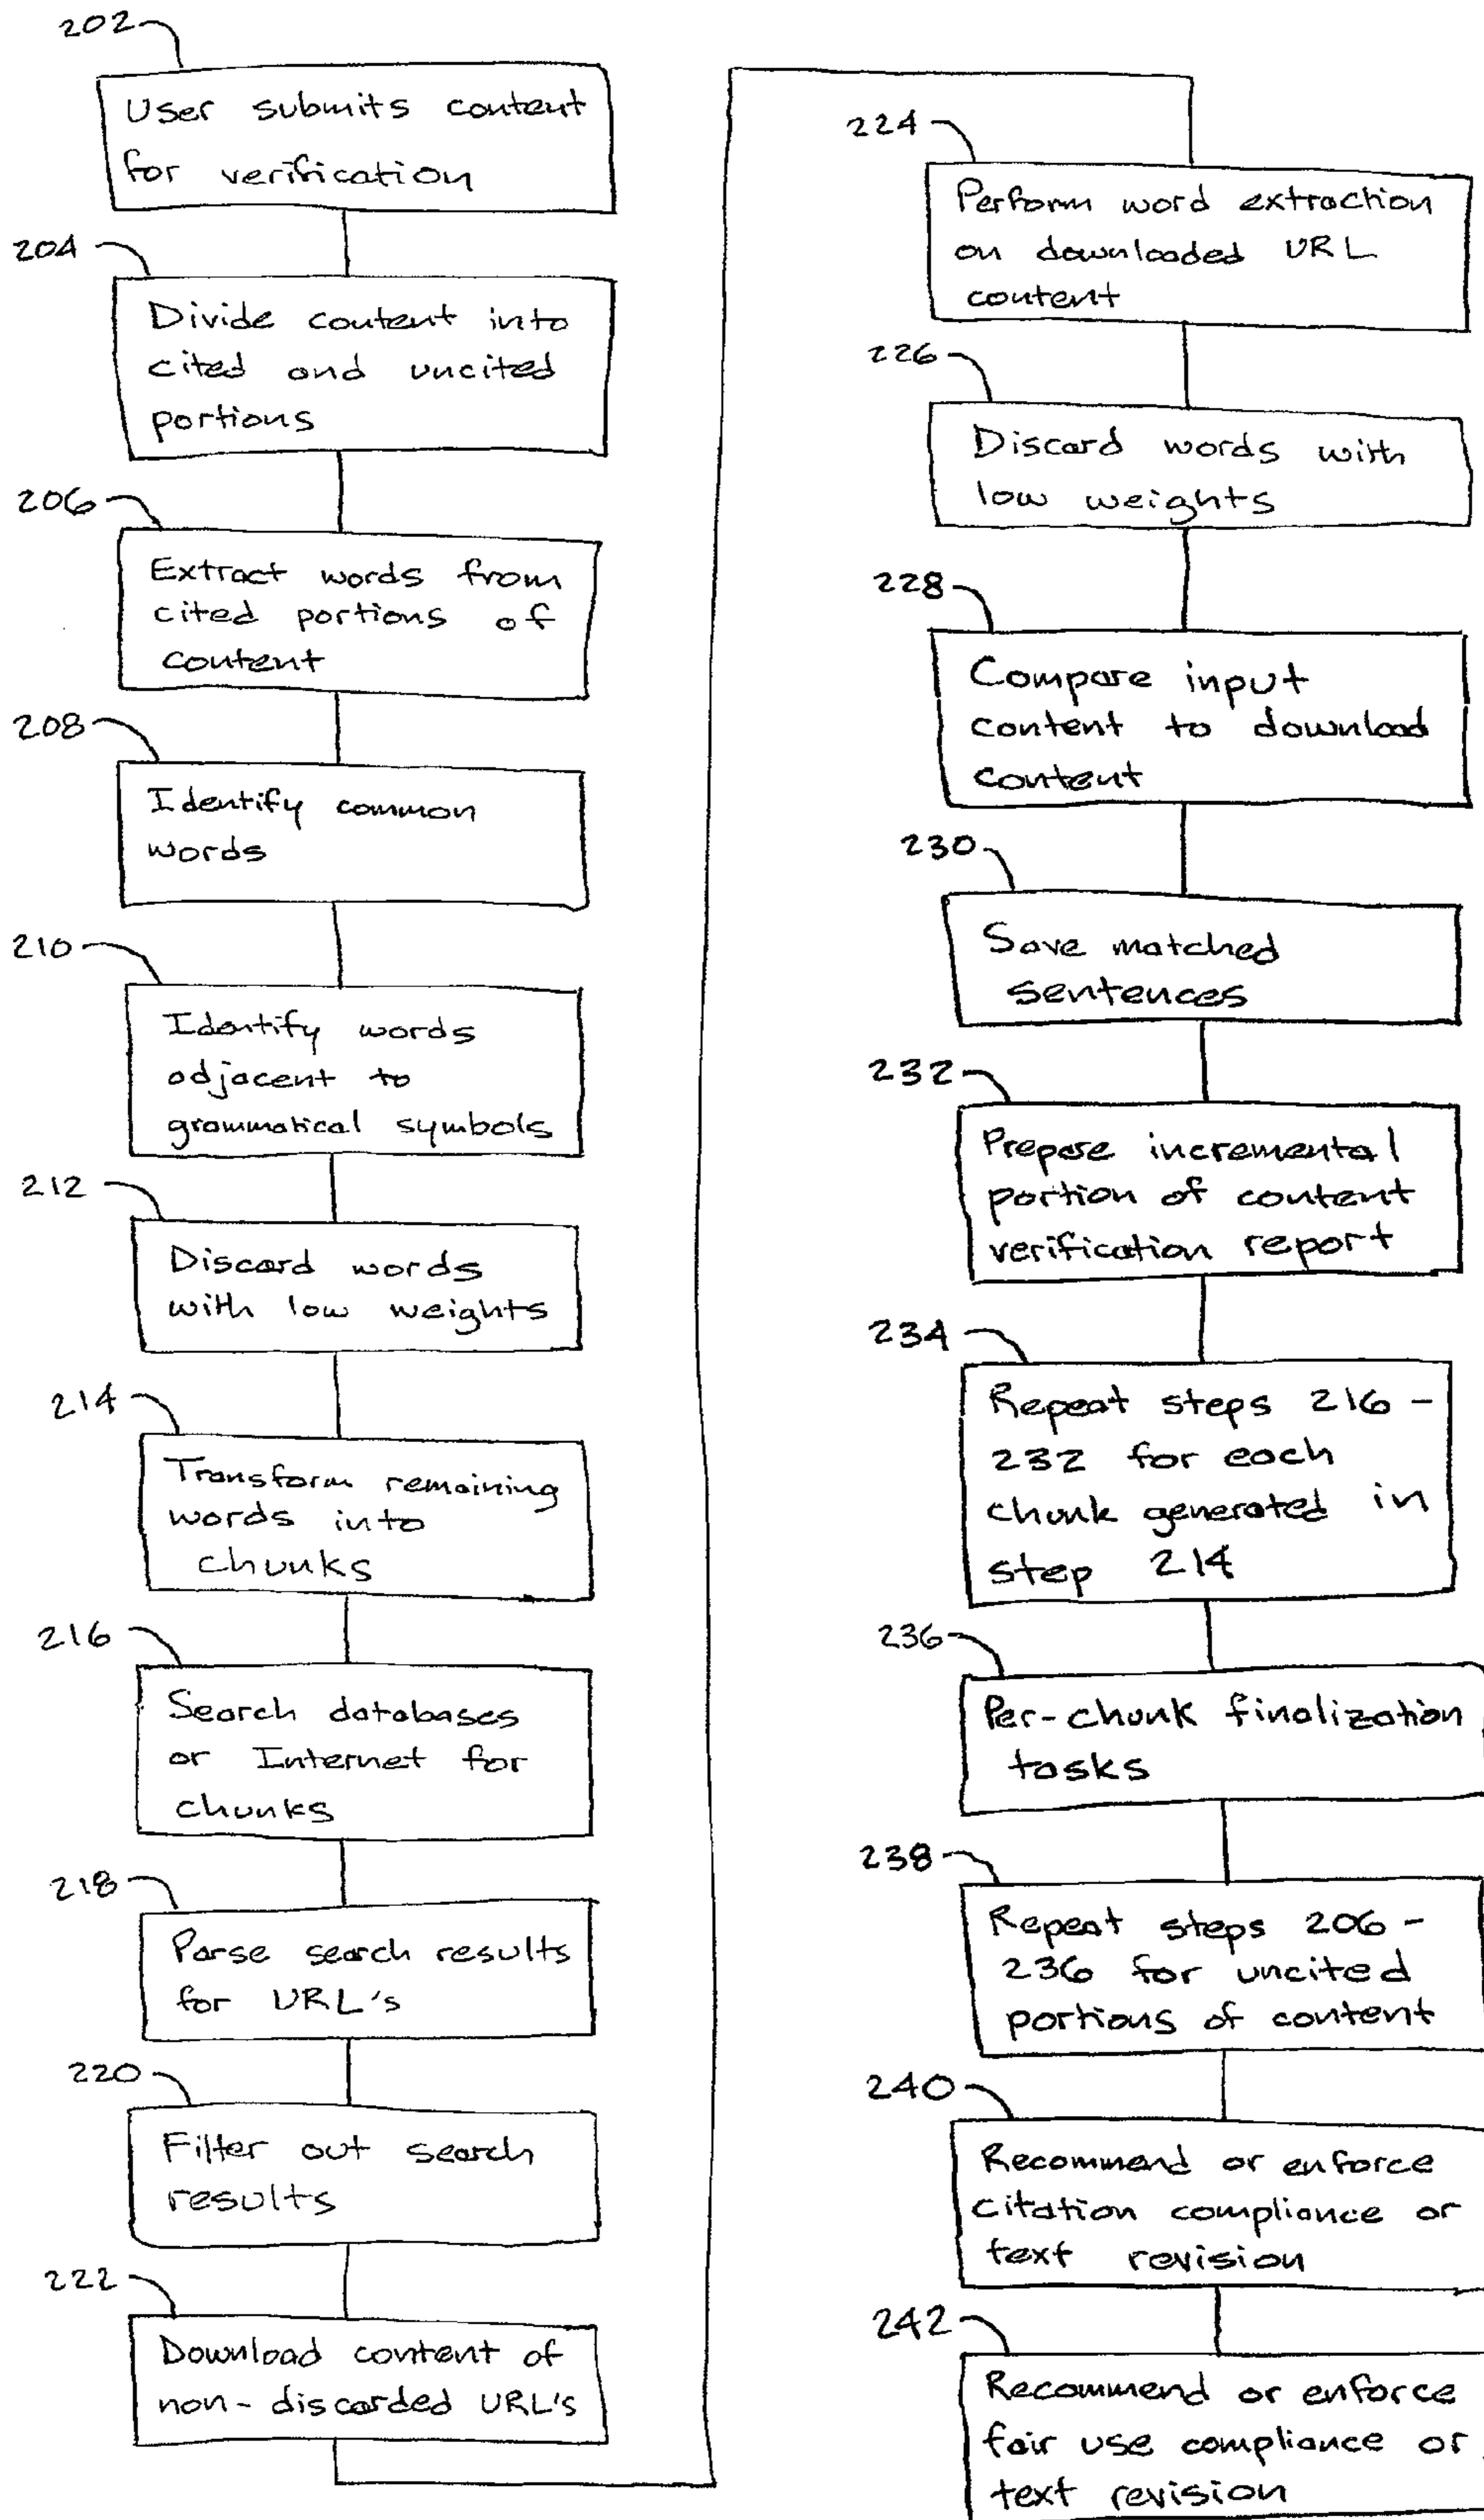 202
User submits content
for verification
204
Divide content into
cited and uncited
portions
206
Extract words from
cited portions of
content
208
Identify common
words
210
Identify words
adjacent to
grammatical symbols
212
Discard words
with low weights
214
Transform remaining
words into
chunks
216
Search databases
or Internet for
chunks
218
Parse search results
for URL's
220
Filter out search
results
222
Download content of
non-discarded URL's
224
Perform word extraction
on downloaded URL
content
226
Discard words with
low weights
228
Compare input
content to download
content
230
Save matched
sentences
232
Prepare incremental
portion of content
verification report
234
Repeat steps 216 -
232 for each
chunk generated in
step 214
236
Per-chunk finalization
tasks
238
Repeat steps 206 -
236 for uncited
portions of content
240
Recommend or enforce
citation compliance or
text revision
242
Recommend or enforce
fair use compliance or
text revision